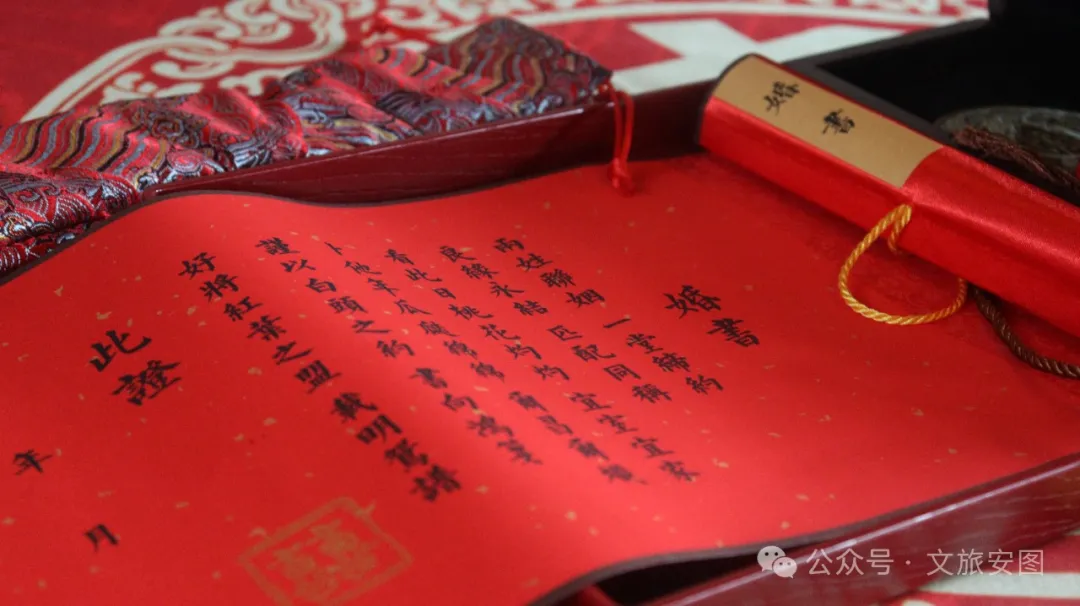 婚書
婚書
兩姓聯姻 一堂締約
良緣永結 匹配同稱
看此日桃花灼灼 宜室宜家
卜他年瓜瓞綿綿 爾昌爾熾
謹以白頭之約 書向鴻箋
好將紅葉之盟 載明鴛譜
此證
年 月
囍
公众号 · 文旅安图